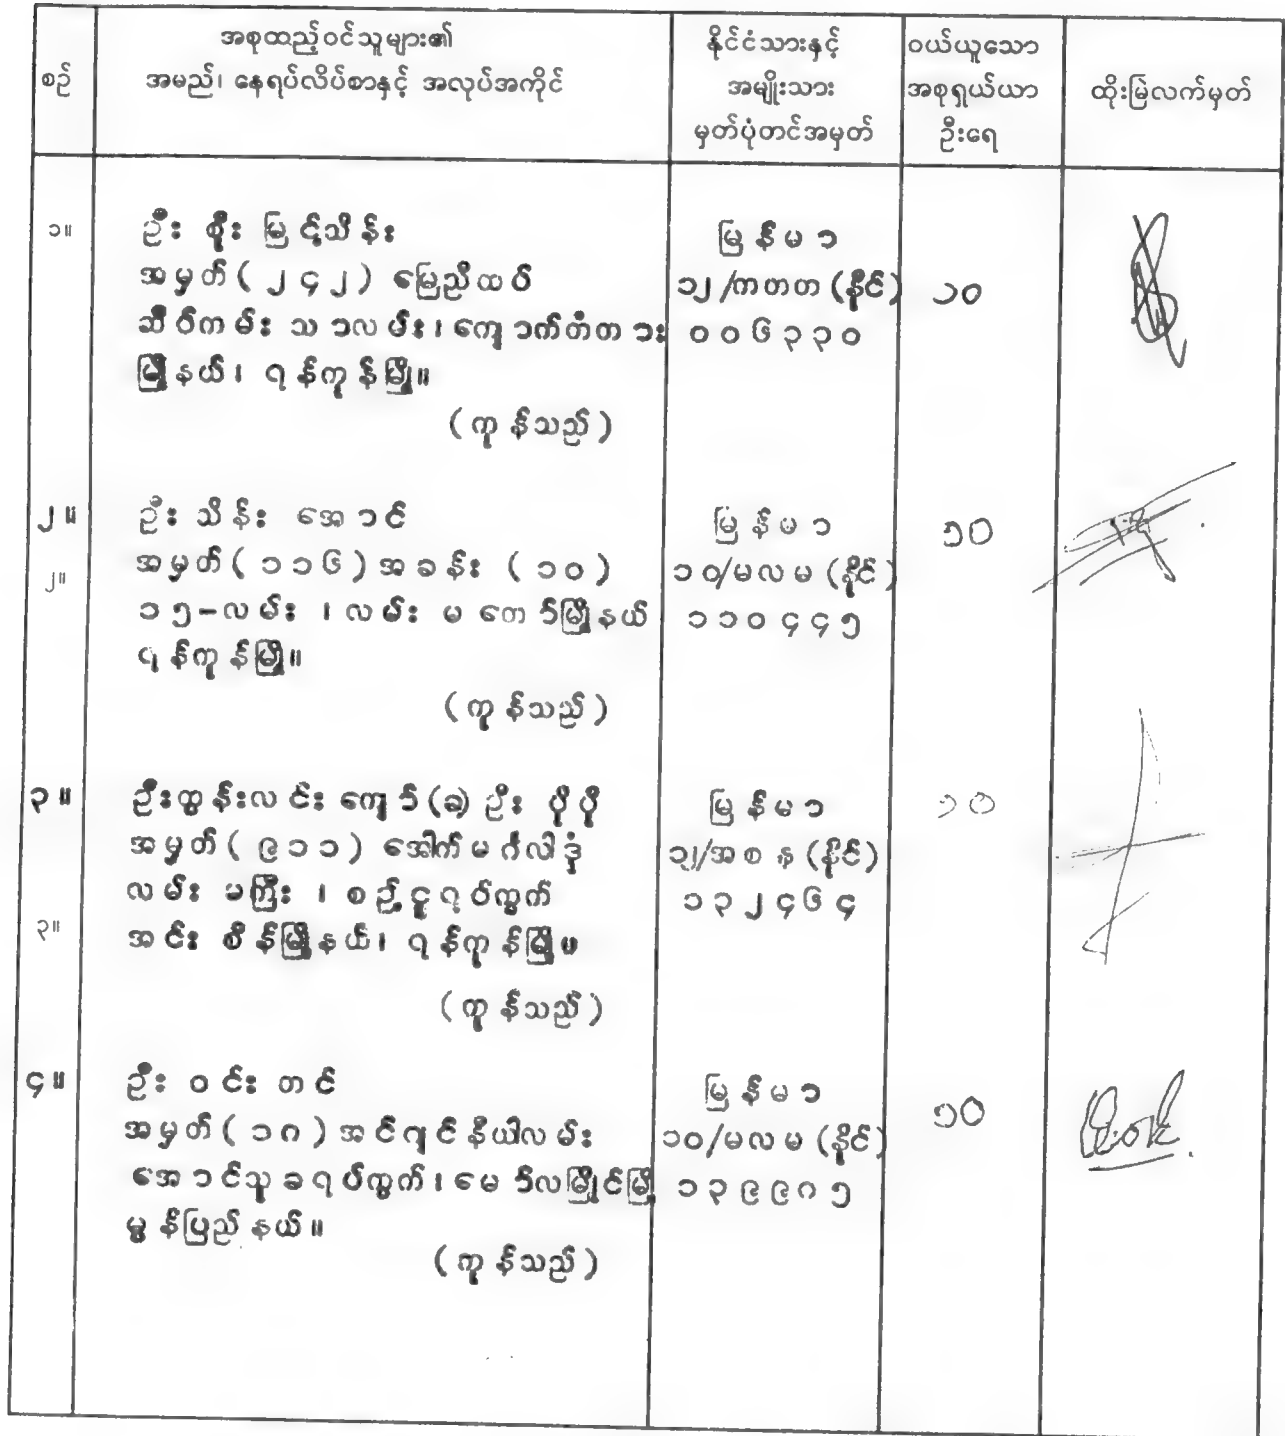 စဉ်
အစုထည့်ဝင်သူများ၏
အမည်၊ နေရပ်လိပ်စာနှင့် အလုပ်အကိုင်
နိုင်ငံသားနှင့်
အမျိုးသား
မှတ်ပုံတင်အမှတ်
ဝယ်ယူသော
အစုရှယ်ယာ
ဦးရေ
ထိုးမြဲလက်မှတ်
၁။
ဦးစိုးမြင့်သိန်း
အမှတ်(၂၄၂)မြေညီထပ်
ဆိပ်ကမ်းသာလမ်း၊ကျောက်တံတား
မြို့နယ်၊ ရန်ကုန်မြို့။
(ကုန်သည်)
မြန်မာ
၁၂/ကတတ(နိုင်)
၀၀၆၃၃၀
၁၀
၂။
၂။
ဦးသိန်းအောင်
အမှတ်(၁၁၆)အခန်း(၁၀)
၁၅-လမ်း၊လမ်းမတော်မြို့နယ်
ရန်ကုန်မြို့။
(ကုန်သည်)
မြန်မာ
၁၀/မလမ(နိုင်)
၁၁၀၄၄၅
၁၀
၃။
၃။
ဦးထွန်းလင်းကျော်(ခ)ဦးပိုပို
အမှတ်(၉၁၁)အောက်မင်္ဂလာဒုံ
လမ်းမကြီး၊စဉ့်ငူရပ်ကွက်
အင်းစိန်မြို့နယ်၊ ရန်ကုန်မြို့။
(ကုန်သည်)
မြန်မာ
၁၂/အစန(နိုင်)
၁၃၂၄၆၄
၁၀
၄။
ဦးဝင်းတင်
အမှတ်(၁၈)အင်ဂျင်နီယာလမ်း
အောင်သုခရပ်ကွက်၊မော်လမြိုင်မြို့
မွန်ပြည်နယ်။
(ကုန်သည်)
မြန်မာ
၁၀/မလမ(နိုင်)
၁၃၉၉၈၅
၁၀